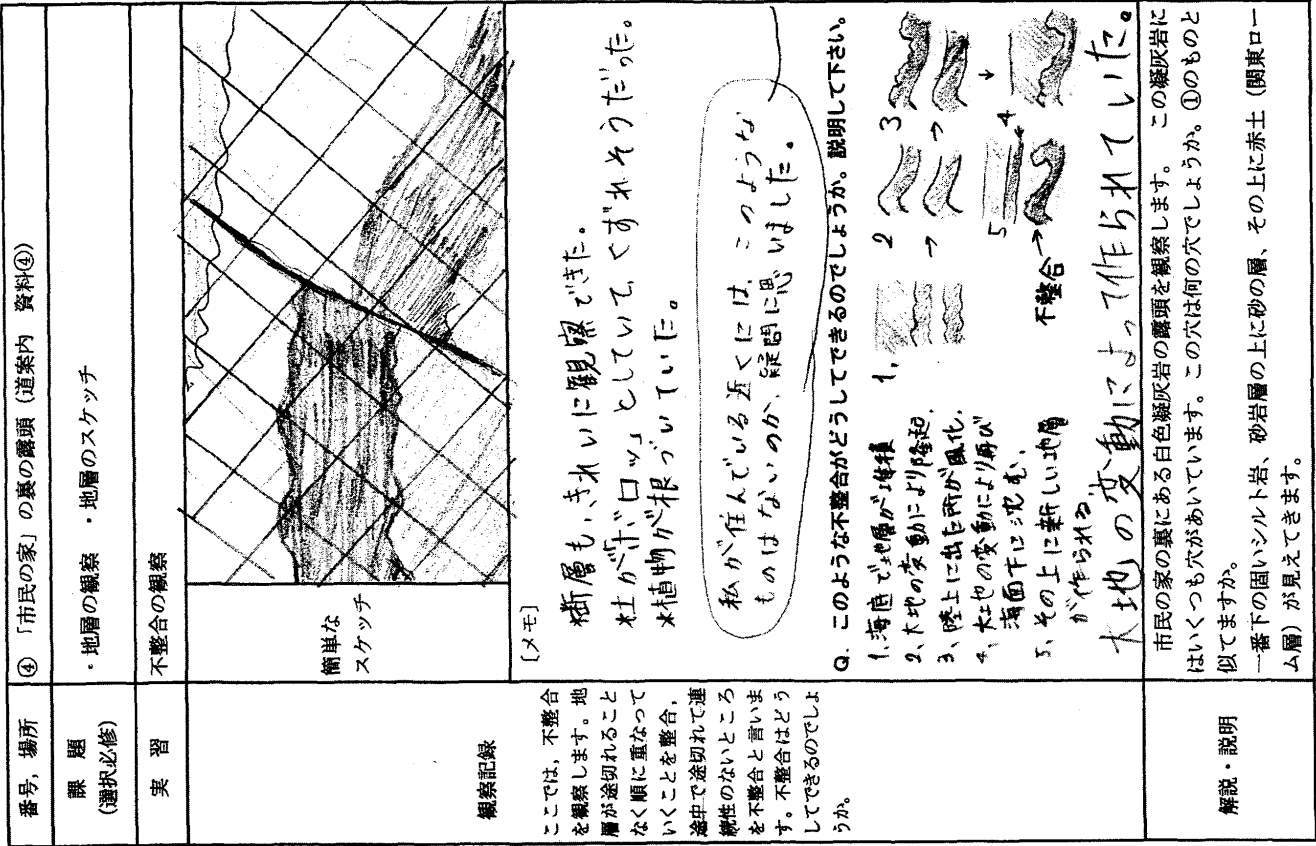 番号，場所
④ 「市民の家」の裏の露頭（道案内　資料④）
課　題
（選択必修）
・地層の観察　・地層のスケッチ
実　習
不整合の観察
観察記録
ここでは，不整合
を観察します。地
層が途切れること
なく順に重なって
いくことを整合，
途中で途切れて連
続性のないところ
を不整合と言いま
す。不整合はどう
してできるのでしょ
うか。
簡単な
スケッチ
［メモ］
断層も、きれいに観察できた。
土がボロッとしていて、くずれそうだった。
植物が根づいていた。
私が住んでいる近くには、このような
ものはないのか、疑問に思いました。
Q．このような不整合がどうしてできるのでしょうか。説明して下さい。
1、海底で地層が堆積
2、大地の変動により隆起、
3、陸上に出た所が風化、
4、大地の変動により再び
海面下に沈む、
5、その上に新しい地層
が作られる、
1,
2
→
3
→
↓
4
5
不整合→
大地の変動によって作られていた。
解説・説明
市民の家の裏にある白色凝灰岩の露頭を観察します。　この凝灰岩に
はいくつも穴があいています。この穴は何の穴でしょうか。①のものと
似てますか。
一番下の固いシルト岩、砂岩層の上に砂の層、その上に赤土（関東ロー
ム層）が見えてきます。